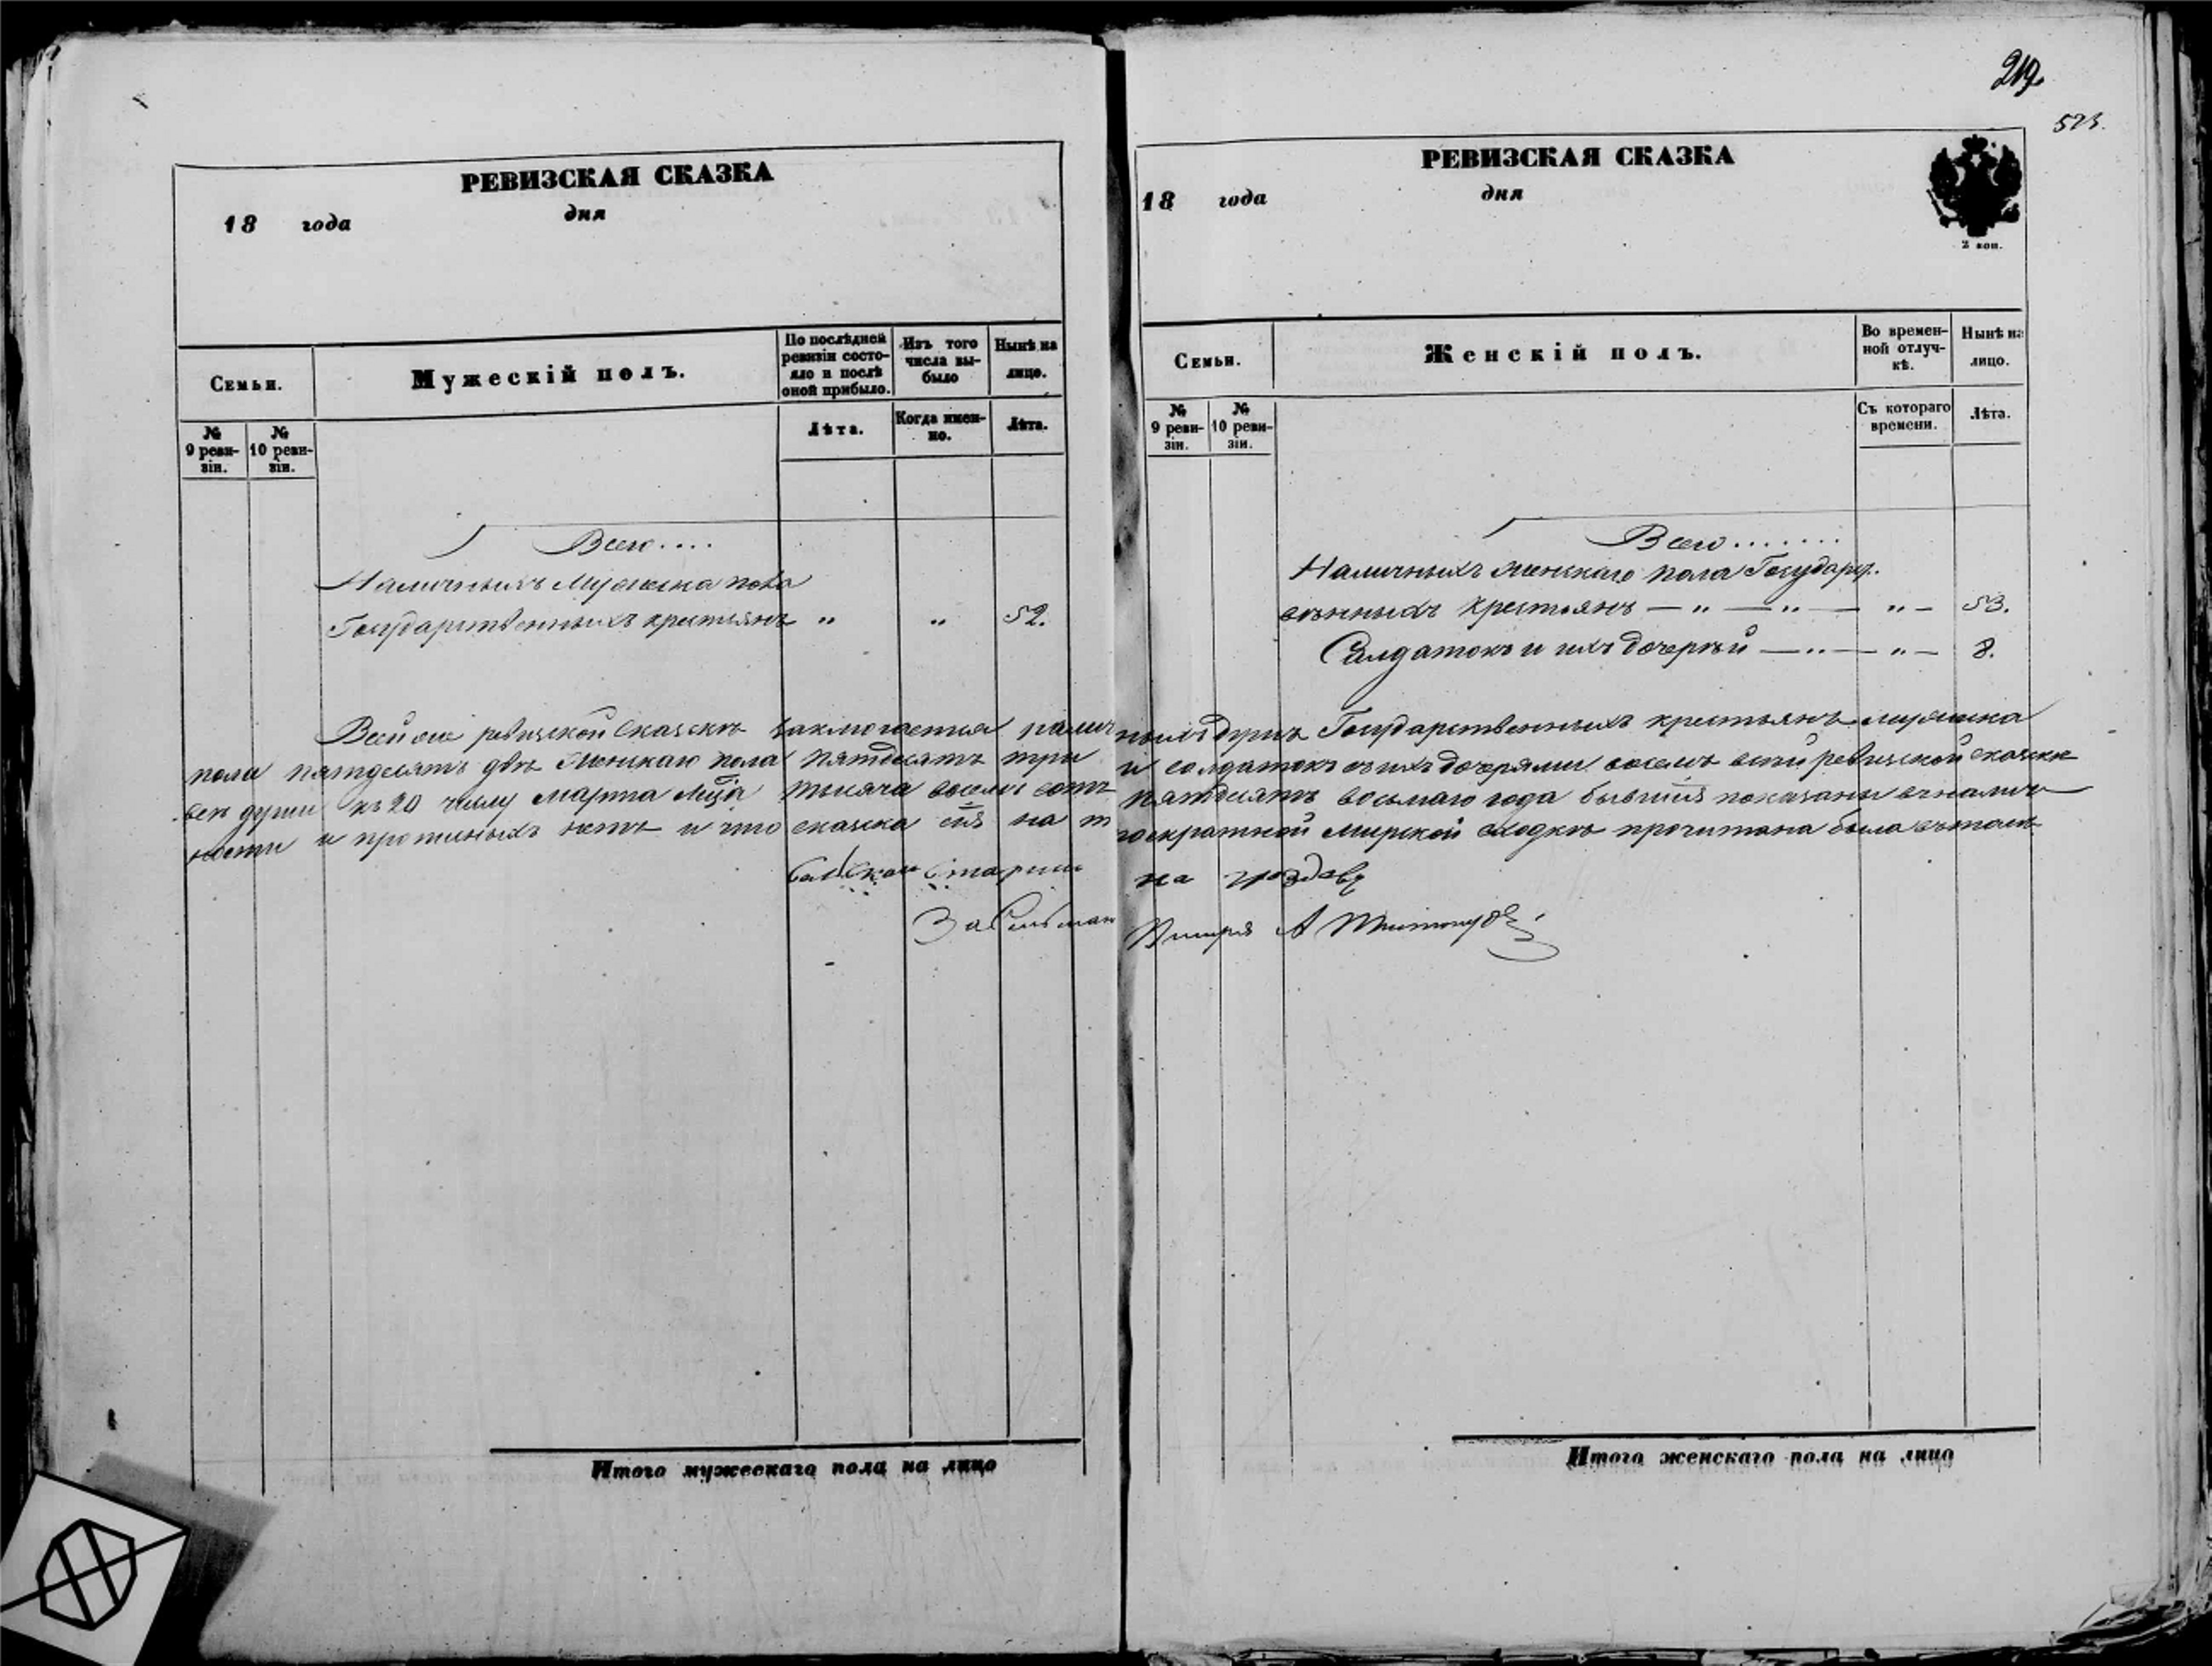 219.
523.
РЕВИЗСКАЯ СКАЗКА
18 года дня
Семьи.
Мужескій полъ.
По послѣдней ревизіи состояло и послѣ оной прибыло.
Изъ того числа выбыло
Нынѣ на лицо.
№ 9 ревизіи.
№ 10 ревизіи.
Лѣта.
Когда именно.
Лѣта.
Всего....
Наличныхъ Мужеска пола
Государственныхъ крестьянъ " " 52.
РЕВИЗСКАЯ СКАЗКА
18 года дня
2 коп.
Семьи.
Женскій полъ.
Во временной отлучкѣ.
Нынѣ на лицо.
№ 9 ревизіи.
№ 10 ревизіи.
Съ котораго времени.
Лѣта.
Всего.......
Наличныхъ женскаго пола Государст-
венныхъ крестьянъ — " — " — " — 53.
Салдатокъ и ихъ дочерѣй — " — " — 8.
Всей ревизской сказкѣ заключается наличныхъ душъ Государственныхъ крестьянъ мужеска
пола пятдесятъ двѣ Женскаго пола пятдесятъ три и солдатокъ съ ихъ дочерями восемь ревизской сказки
всѣ души къ 20 числу марта мѣца тысяча восемь сотъ пятдесятъ восьмаго года показаны въ налич-
ности и нетъ и что сказка сія на мирской сходкѣ прочитана была
Старшина
За
А
Итого мужескаго пола на лицо
Итого женскаго пола на лицо